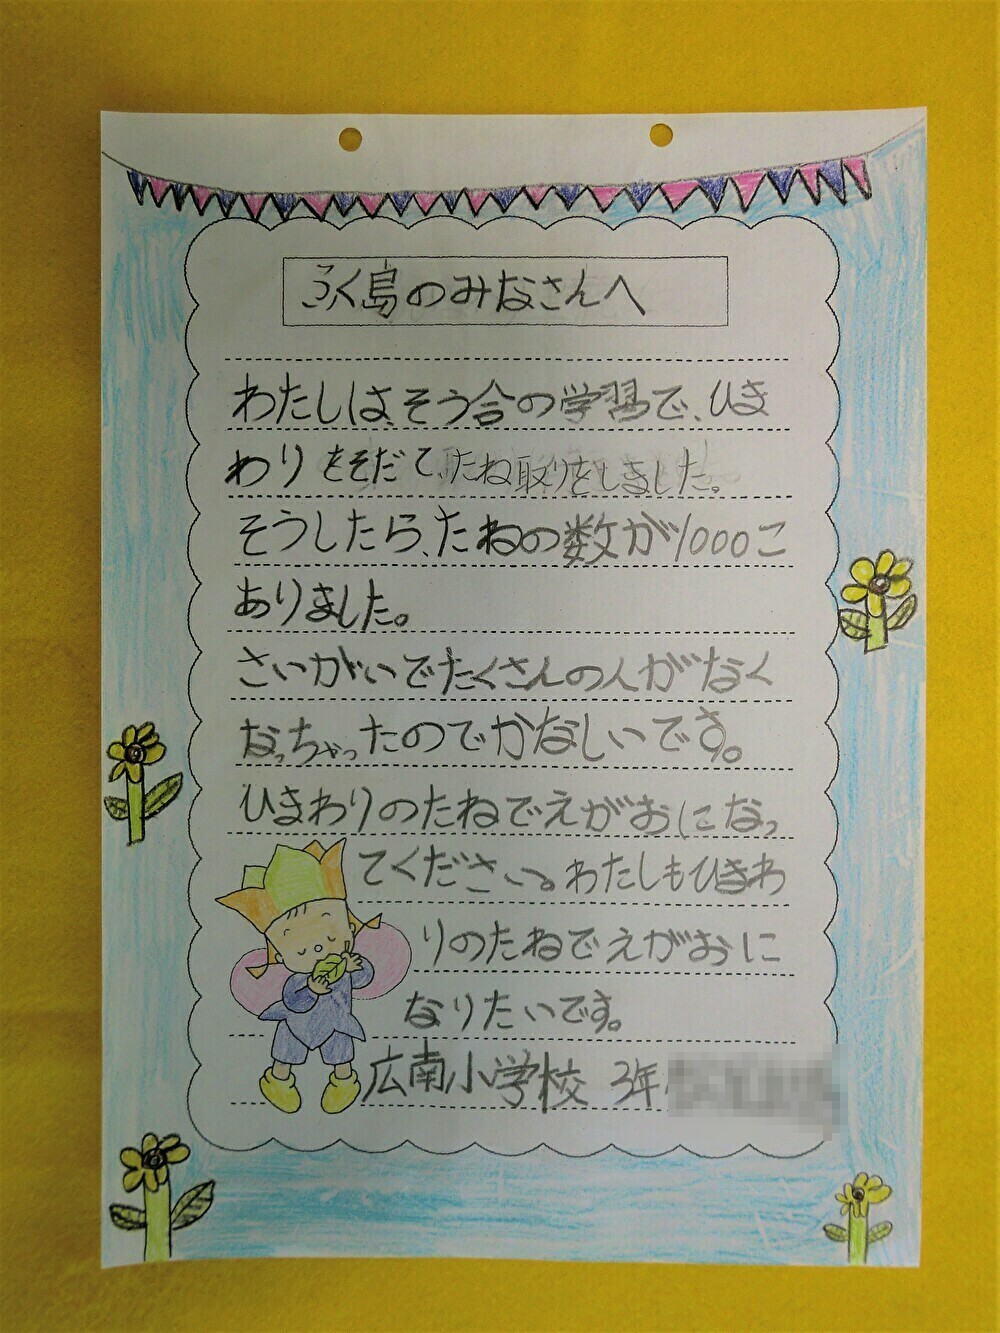 ふく島のみなさんへ
わたしは、そう合の学習で、ひま
わりをそだて、たね取りをしました。
そうしたら、たねの数が1000こ
ありました。
さいがいでたくさんの人がなく
なっちゃったのでかなしいです。
ひまわりのたねでえがおになっ
てください。わたしもひまわ
りのたねでえがおに
なりたいです。
広南小学校 3年